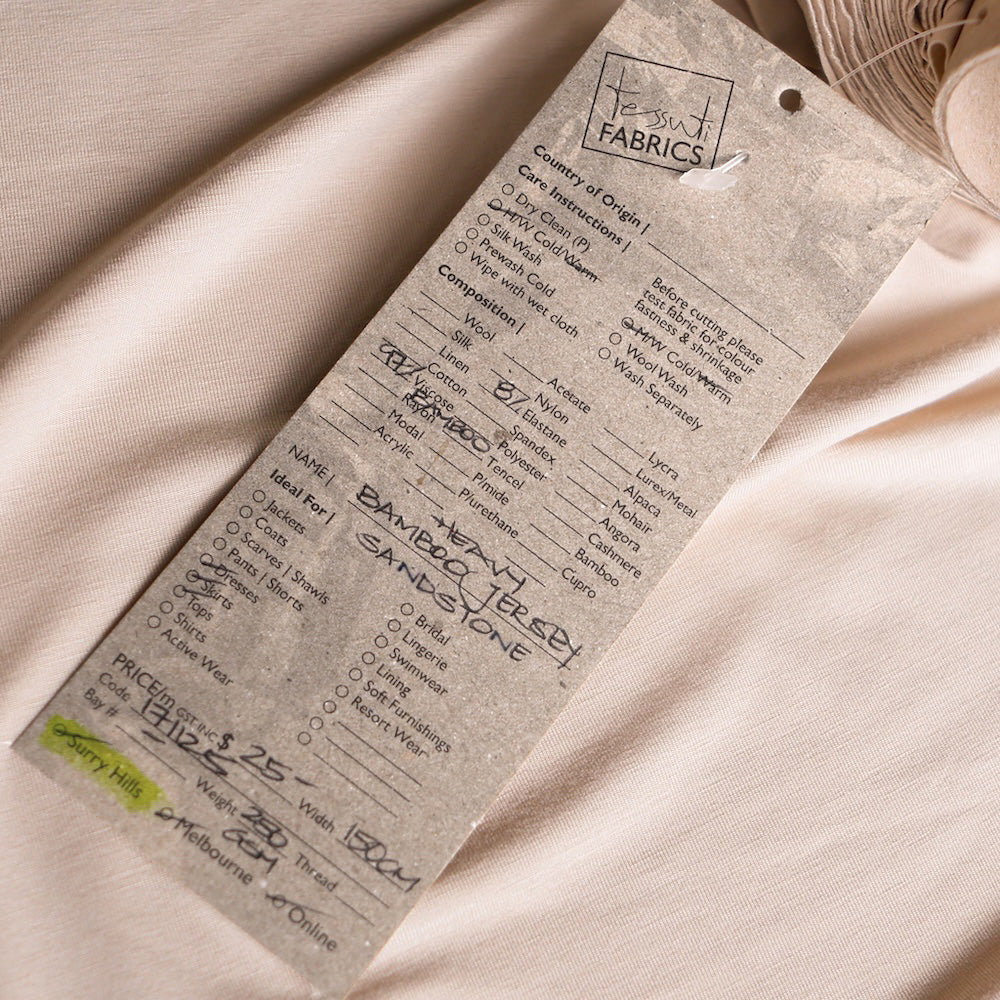 tessuti
FABRICS
Country of Origin |
Care Instructions |
Dry Clean (P)
H/W Cold/Warm
Silk Wash
Prewash Cold
Wipe with wet cloth
Before cutting please
test fabric for colour
fastness & shrinkage
M/W Cold/Warm
Wool Wash
Wash Separately
Composition |
Wool
Silk
Linen
Cotton
Viscose
Rayon
BAMBOO
Modal
Acrylic
Acetate
Nylon
8% Elastane
Spandex
Polyester
Tencel
P/mide
P/urethane
Lycra
Lurex/Metal
Alpaca
Mohair
Angora
Cashmere
Bamboo
Cupro
NAME | HEAVY
BAMBOO JERSEY
SANDSTONE
Ideal For |
Jackets
Coats
Scarves | Shawls
Pants | Shorts
Dresses
Skirts
Tops
Shirts
Active Wear
Bridal
Lingerie
Swimwear
Lining
Soft Furnishings
Resort Wear
PRICE/m GST INC $ 25 -
Code 171125 Width 150CM
Bay # Weight 250 GSM Thread
Surry Hills Melbourne Online